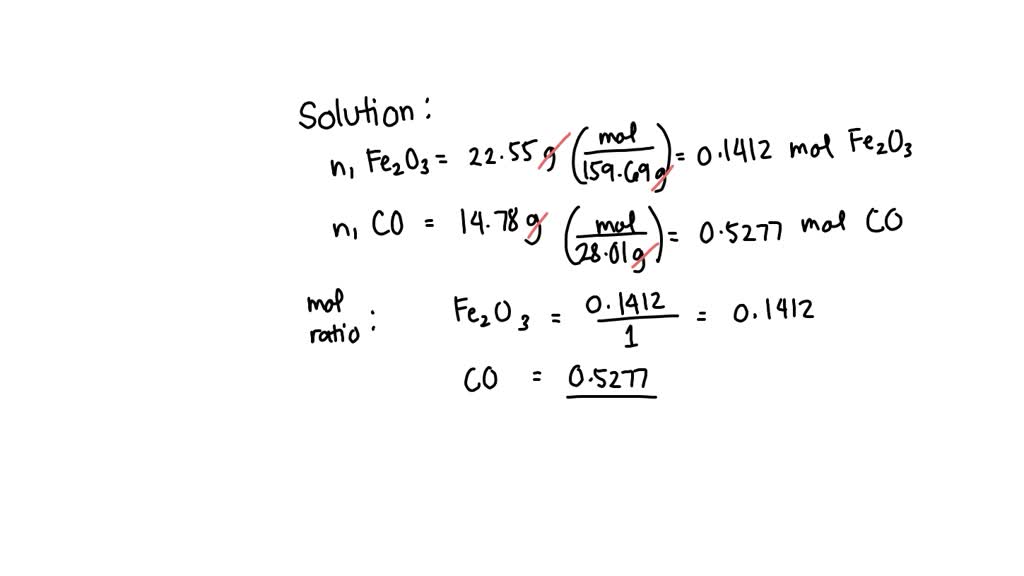 Solution:
n, Fe₂O₃ = 22.55 g (mol / 159.69 g) = 0.1412 mol Fe₂O₃
n, CO = 14.78 g (mol / 28.01 g) = 0.5277 mol CO
mol ratio: Fe₂O₃ = 0.1412 / 1 = 0.1412
CO = 0.5277